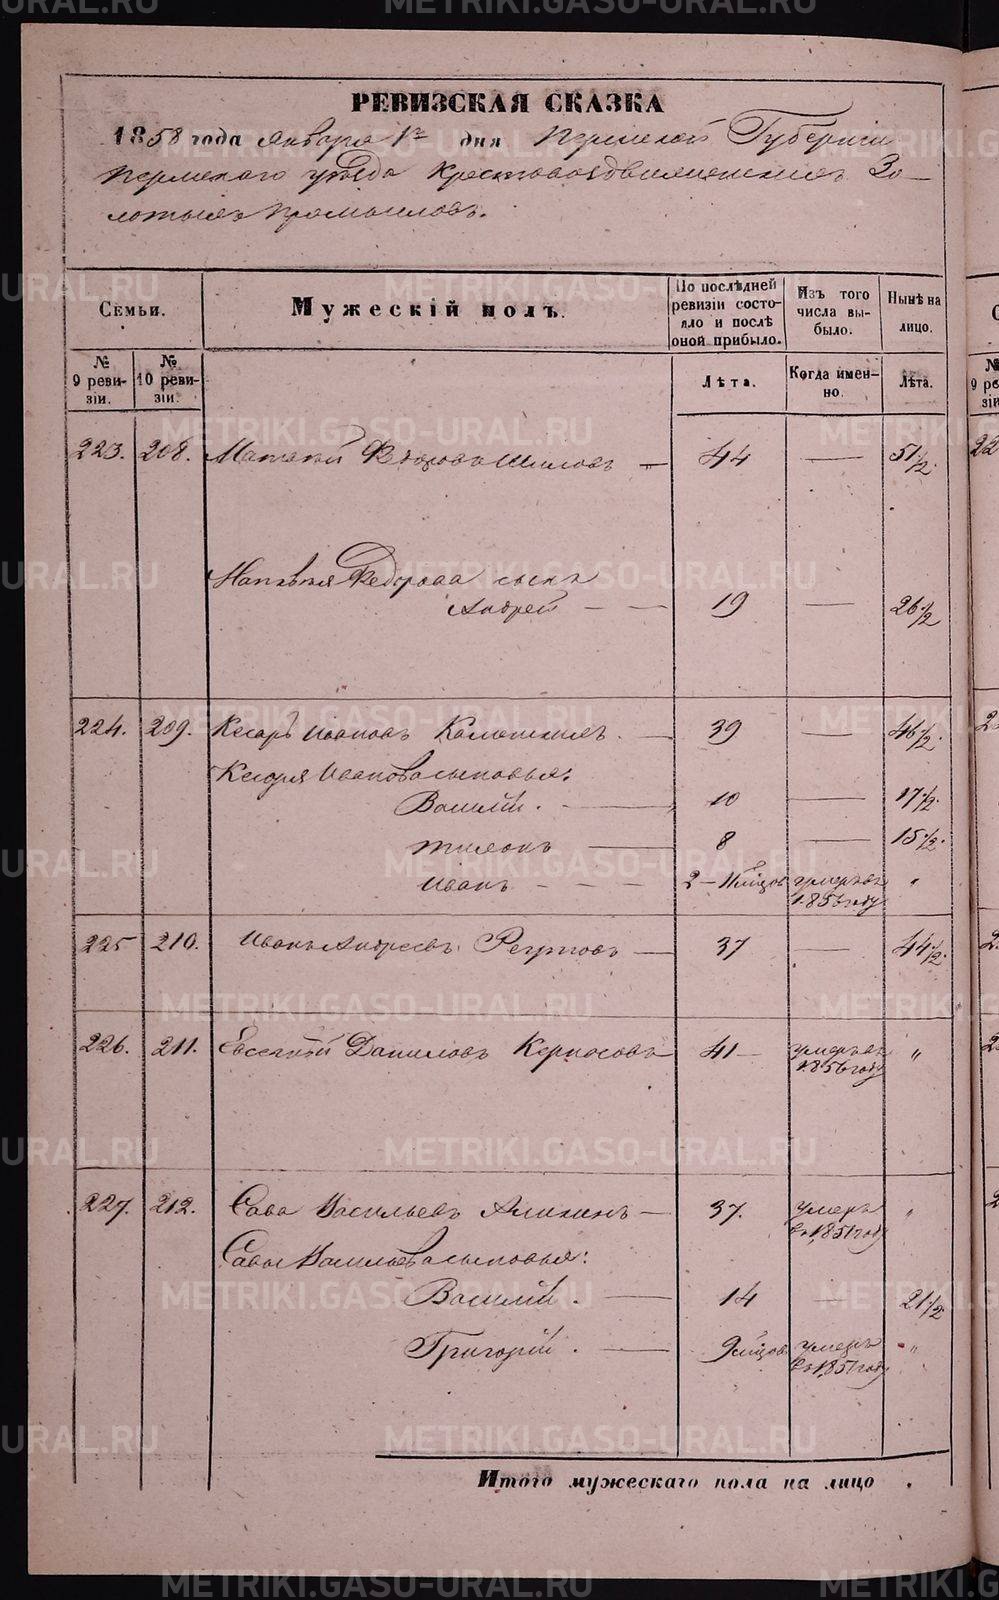 РЕВИЗСКАЯ СКАЗКА
1858 года Января 1го дня Пермской Губернiи
Пермскаго уѣзда Крестовоздвиженскихъ Зо-
лотыхъ Промысловъ.
Семьи.
Мужескiй полъ.
По послѣдней ревизiи состо-
яло и послѣ оной прибыло.
Изъ того числа вы-
было.
Нынѣ на лицо.
№ 9 реви-
зiи.
№ 10 реви-
зiи.
Лѣта.
Когда имен-
но.
Лѣта.
223. 208. Матвѣй Ѳедоровъ Шиловъ — 44 — 51 1/2
Матвѣя Ѳедорова сынъ
Андрей — — 19 — 26 1/2
224. 209. Кесарь Ивановъ — 39 — 46 1/2
Кесаря Иванова сыновья:
Василiй. — 10 — 17 1/2
Тихонъ — 8 — 15 1/2
Иванъ - - - 2 — умеръ въ 1856 году "
225 210. Иванъ Андреевъ — 37 — 44 1/2
226. 211. Евсегнѣй Даниловъ Керносовъ 41 — умеръ въ 1856 году "
227. 212. Сава Васильевъ Аликинъ — 37. умеръ въ 1851 году "
Савы Васильева сыновья:
Василiй. — 14 — 21 1/2
Григорiй. — 9 мѣсяцовъ умеръ въ 1851 году "
Итого мужескаго пола на лицо .
METRIKI.GASO-URAL.RU